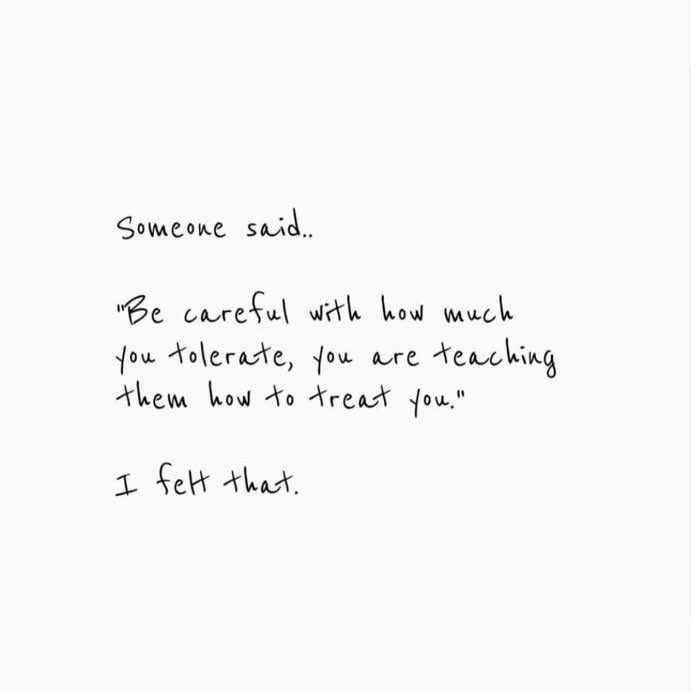 Someone said..
"Be careful with how much
you tolerate, you are teaching
them how to treat you."
I felt that.